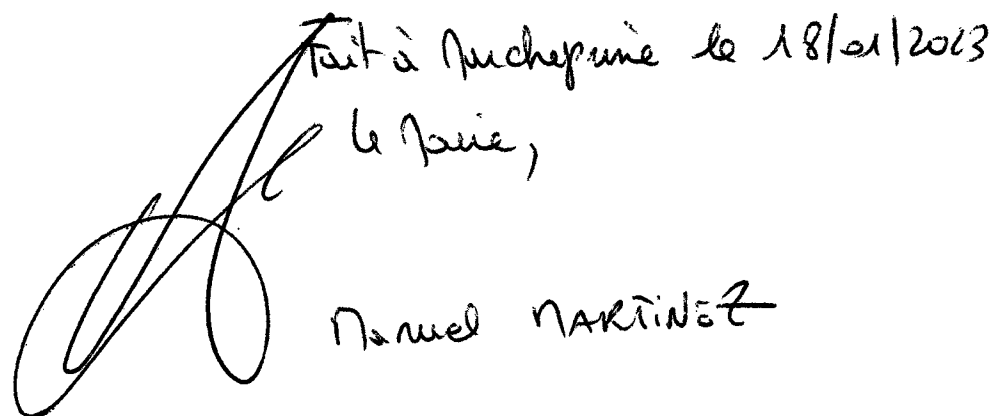 Fait à Marcheprime le 18/01/2023
le Maire,
Manuel MARTINEZ